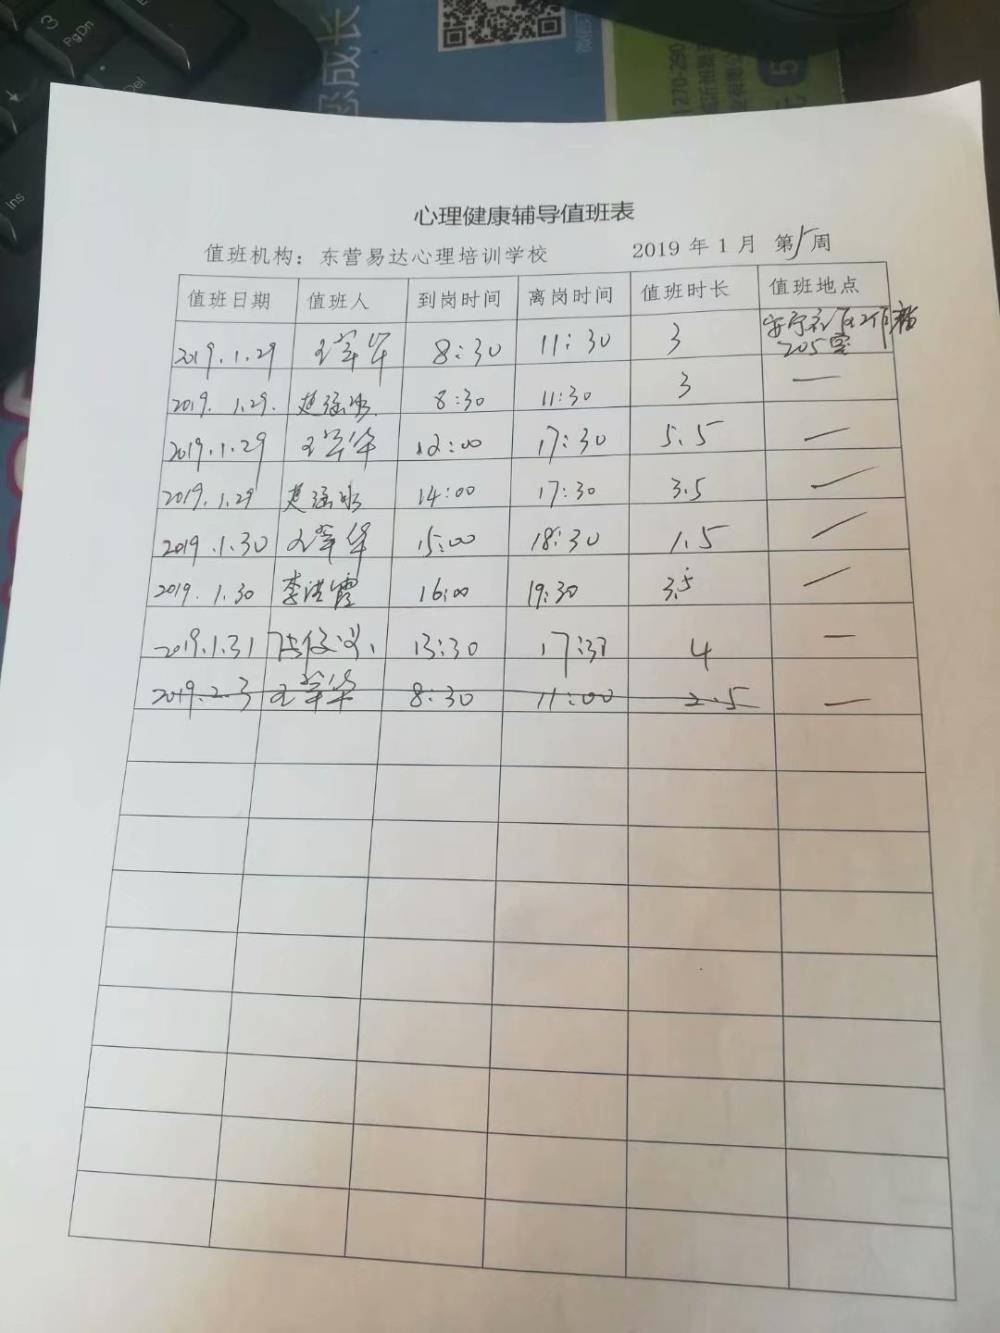 3
PgDn
Del
Ins
成长
270-290
5
心理健康辅导值班表
值班机构：东营易达心理培训学校 2019 年 1 月 第5周
值班日期 值班人 到岗时间 离岗时间 值班时长 值班地点
2019.1.29 王军华 8:30 11:30 3
205室
2019.1.29. 8:30 11:30 3 —
2019.1.29 王军华 12:00 17:30 5.5 —
2019.1.29 14:00 17:30 3.5 —
2019.1.30 王军华 15:00 18:30 1.5 —
2019.1.30 李洪霞 16:00 19:30 3.5 —
2019.1.31 13:30 17:30 4 —
2019.2.3 王军华 8:30 11:00 2.5 —